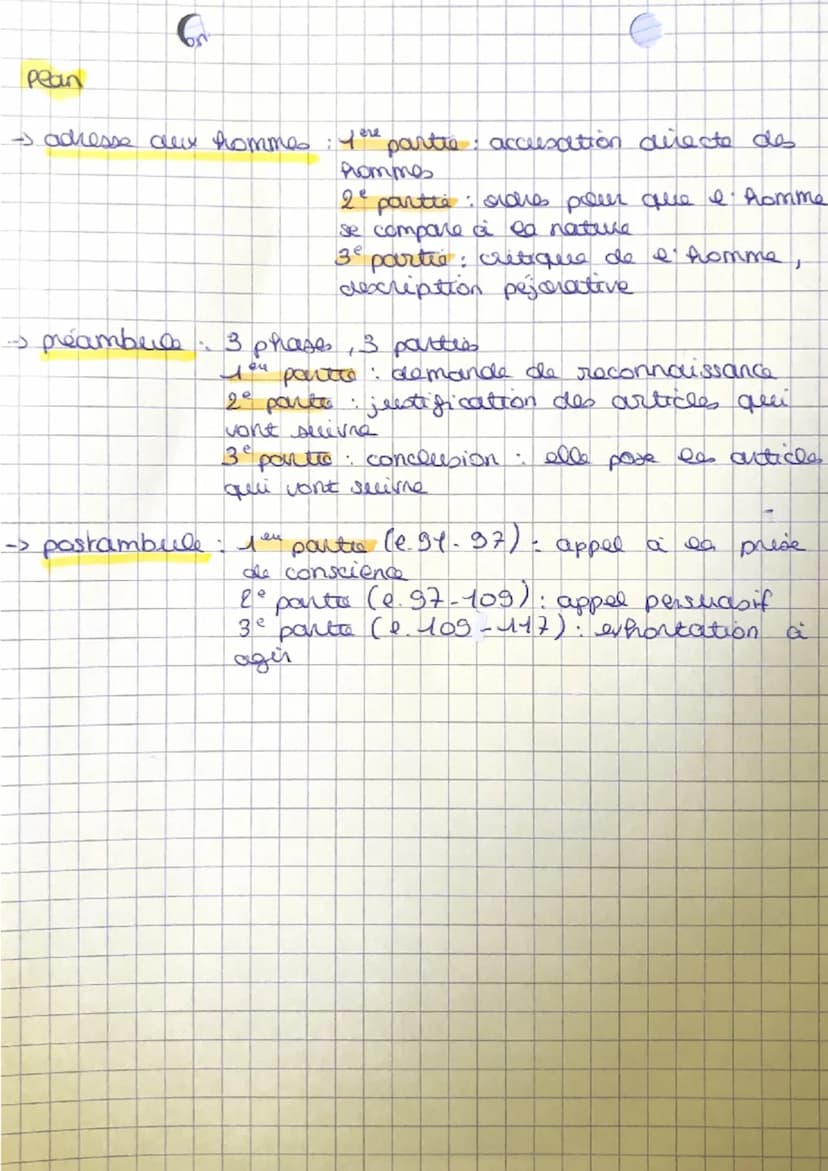 on
Plan
→ adresse aux hommes : 1ère partie : accusation directe des
hommes
2e partie : ordres pour que l'homme
se compare à la nature
3e partie : critique de l'homme,
description péjorative
→ préambule : 3 phases, 3 parties
1ère partie : demande de reconnaissance
2e partie : justification des articles qui
vont suivre
3e partie : conclusion : elle pose les articles
qui vont suivre
→ postambule : 1ère partie (l. 91-97) : appel à la prise
de conscience
2e partie (l. 97-109) : appel persuasif
3e partie (l. 109-117) : exhortation à
agir